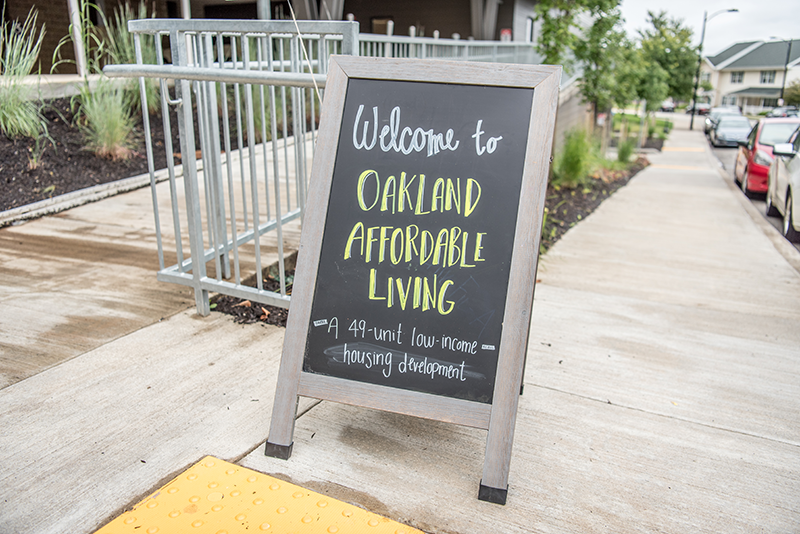 Welcome to
OAKLAND
AFFORDABLE
LIVING
A 49-unit low-income
housing development